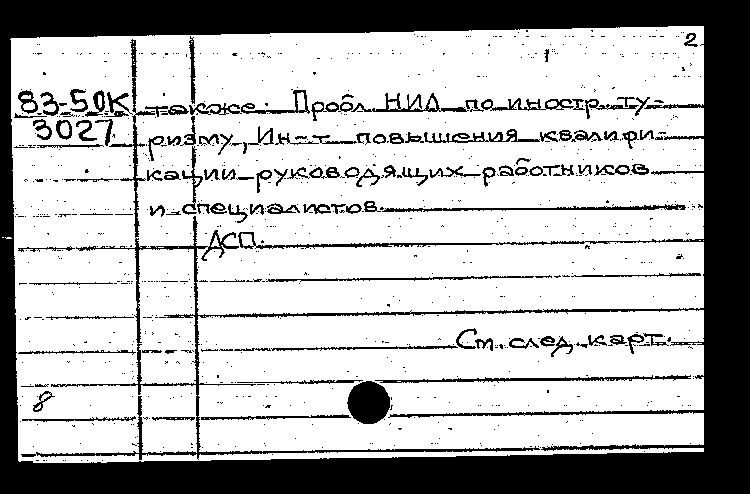 2
83-5.0К также: Пробл. НИЛ по иностр. ту-
3027 ризму, Ин-т повышения квалифи-
кации руководящих работников
и специалистов.
ДСП.
См. след. карт.
8